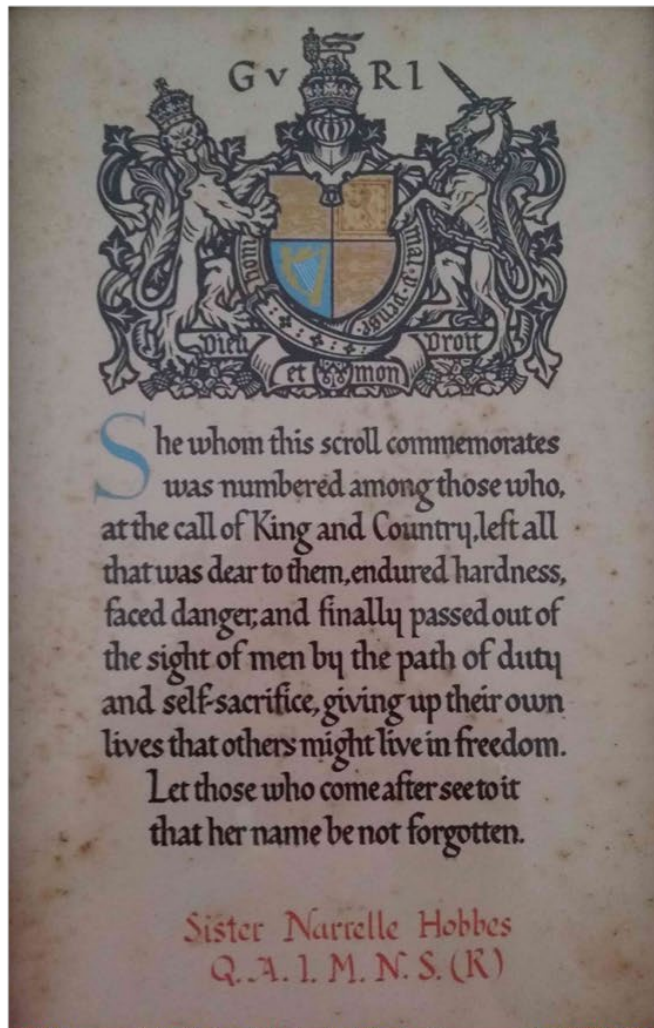 G V R I
honi
mal·y·pense
Dieu
Droit
et mon
She whom this scroll commemorates
was numbered among those who,
at the call of King and Country, left all
that was dear to them, endured hardness,
faced danger, and finally passed out of
the sight of men by the path of duty
and self-sacrifice, giving up their own
lives that others might live in freedom.
Let those who come after see to it
that her name be not forgotten.
Sister Narrelle Hobbes
Q. A. I. M. N. S. (R)